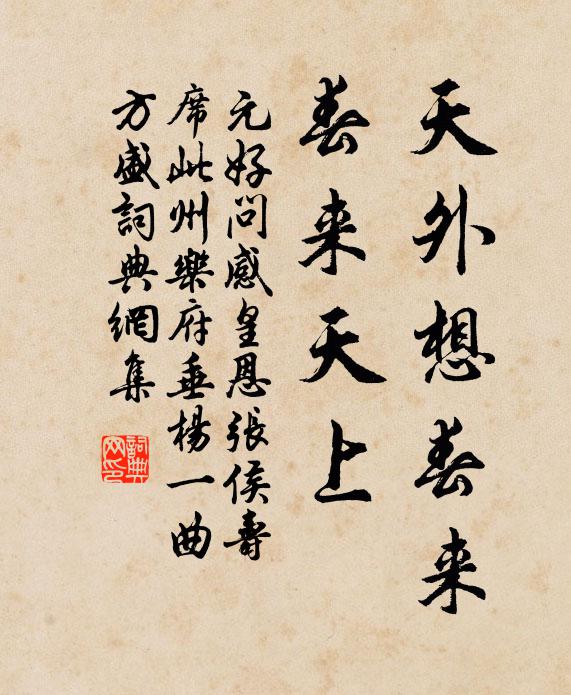 天外想春来
春来天上
元好问感皇恩张侯寿
席此州樂府垂楊一曲
方盛詞典網集
詞典网印